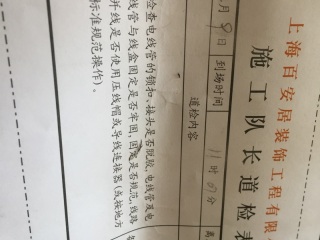 上海百安居装饰工程有限
施工队长道检表
月9日 到场时间 11时07分
道检内容
检查电线管的锁扣、接头是否脱胶，电线管及电
线管与线盒固定是否牢固，固定是否规范，线路
并线是否使用压线帽或导线连接器（或按地方
标准规范操作）。